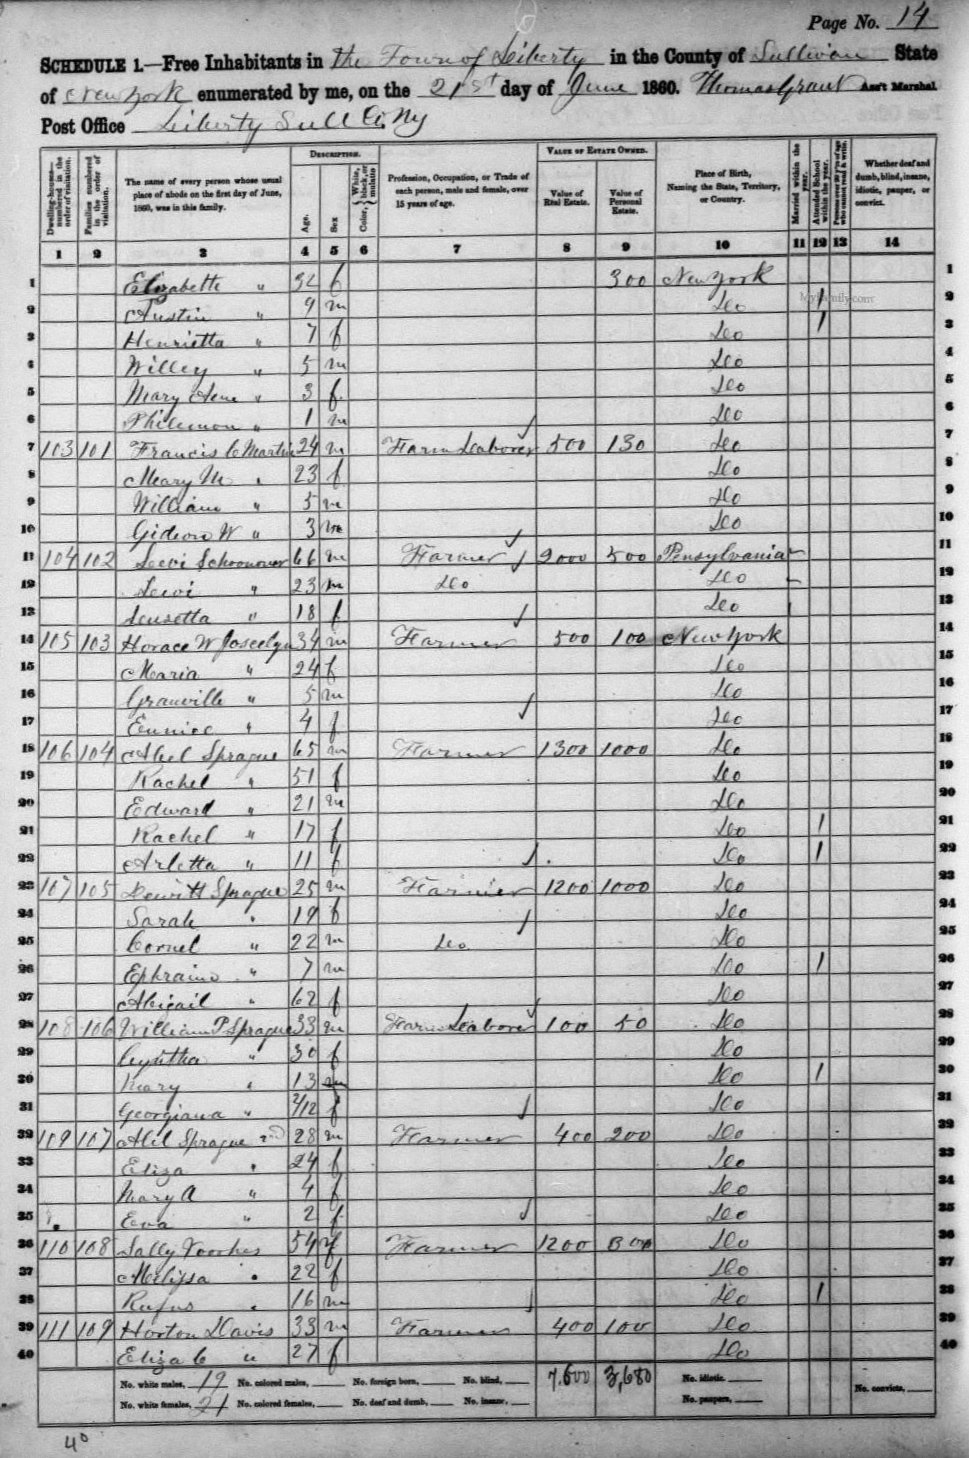 Page No. 14
SCHEDULE 1.—Free Inhabitants in the Town of Liberty in the County of Sullivan State
of New York enumerated by me, on the 21st day of June 1860. Thomas Grant Ass't Marshal
Post Office Liberty Sull Co. Ny
Dwelling-houses—numbered in the order of visitation. Families numbered in the order of visitation. The name of every person whose usual place of abode on the first day of June, 1860, was in this family. DESCRIPTION. Age. Sex Color, White, black, or mulatto Profession, Occupation, or Trade of each person, male and female, over 15 years of age. VALUE OF ESTATE OWNED. Value of Real Estate. Value of Personal Estate. Place of Birth, Naming the State, Territory, or Country. Married within the year. Attended School within the year. Persons over 20 y'rs of age who cannot read & write. Whether deaf and dumb, blind, insane, idiotic, pauper, or convict.
1 2 3 4 5 6 7 8 9 10 11 12 13 14
1 Elizabeth " 32 f 300 New York 1
2 Austin " 9 m Do 1 2
MyFamily.com
3 Henrietta " 7 f Do 1 3
4 Willey " 5 m Do 4
5 Mary Ane " 3 f Do 5
6 Philemon " 1 m Do 6
7 103 101 Francis C Martin 24 m Farm Laborer 500 130 Do 7
8 Mary M " 23 f Do 8
9 William " 5 m Do 9
10 Gideon W " 3 m Do 10
11 104 102 Levi Schoonover 66 m Farmer 2000 500 Pensylvania 11
12 Levi " 23 m Do Do 12
13 " 18 f Do 13
14 105 103 Horace W Joscelyn 34 m Farmer 500 100 New York 14
15 Maria " 24 f Do 15
16 Granville " 5 m Do 16
17 Eunice " 4 f Do 17
18 106 104 Abel Sprague 65 m Farmer 1300 1000 Do 18
19 Rachel " 51 f Do 19
20 Edward " 21 m Do 20
21 Rachel " 17 f Do 1 21
22 Arletta " 11 f Do 1 22
23 107 105 Dewitt Sprague 25 m Farmer 1200 1000 Do 23
24 Sarah " 19 f Do 24
25 Cornel " 22 m Do Do 25
26 Ephraim " 7 m Do 1 26
27 Abigail " 62 f Do 27
28 108 106 William P Sprague 33 m Farm Laborer 100 50 Do 28
29 Cyntha " 30 f Do 29
30 " 13 m Do 1 30
31 Georgiana " 2/12 f Do 31
32 109 107 Abil Sprague 2nd 28 m Farmer 400 200 Do 32
33 Eliza " 24 f Do 33
34 Mary A " 4 f Do 34
35 Eva " 2 f Do 35
36 110 108 Sally Voorhes 54 f Farmer 1200 Do 36
37 Melissa " 22 f Do 37
38 Rufus " 16 m Do 1 38
39 111 109 Horton Davis 33 m Farmer 400 100 Do 39
40 Eliza C " 27 f Do 40
No. white males, 19 No. colored males, No. foreign born, No. blind, 7,600 3,680 No. idiotic.
No. white females, 21 No. colored females, No. deaf and dumb, No. insane, No. paupers, No. convicts,
40